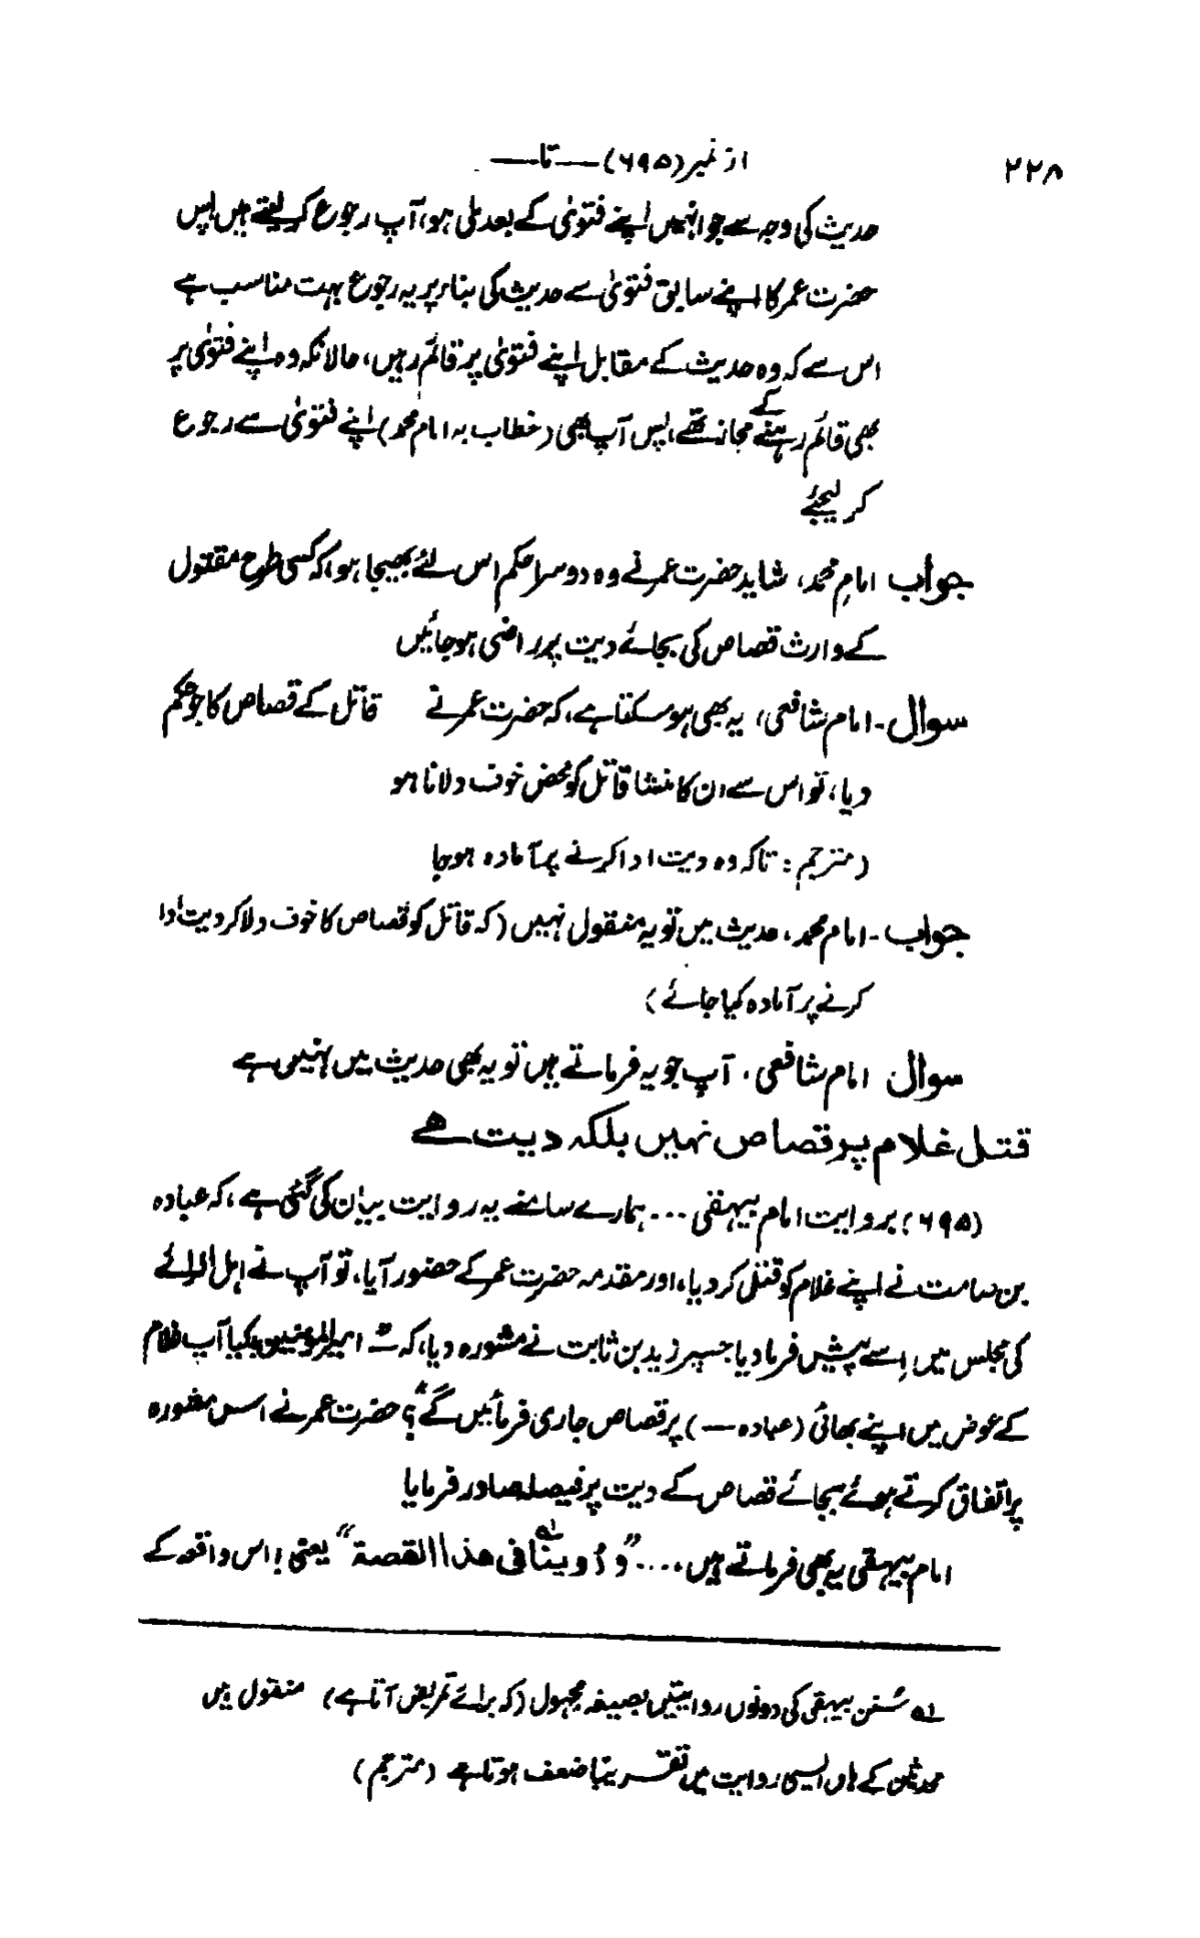 ۲۲۸
از نمبر (۶۹۵) — تا —
حدیث کی وجہ سے جو انہیں اپنے فتویٰ کے بعد ملی ہو، آپ رجوع کر لیتے ہیں پس
حضرت عمر کا اپنے سابق فتویٰ سے حدیث کی بنا پر یہ رجوع بہت مناسب ہے
اس سے کہ وہ حدیث کے مقابل اپنے فتویٰ پر قائم رہیں، حالانکہ وہ اپنے فتویٰ پر
بھی قائم رہنے کے مجاز تھے، پس آپ بھی (خطاب بہ امام محمد) اپنے فتویٰ سے رجوع
کر لیجئے
جواب امامِ محمد، شاید حضرت عمر نے وہ دوسرا حکم اس لئے بھیجا ہو، کہ کسی طرح مقتول
کے وارث قصاص کی بجائے دیت پر راضی ہو جائیں
سوال۔ امام شافعی، یہ بھی ہو سکتا ہے، کہ حضرت عمر نے قاتل کے قصاص کا جو حکم
دیا، تو اس سے ان کا منشا قاتل کو محض خوف دلانا ہو
(مترجم: تاکہ وہ دیت ادا کرنے پر آمادہ ہو جا
جواب۔ امام محمد، حدیث میں تو یہ منقول نہیں (کہ قاتل کو قصاص کا خوف دلا کر دیت ادا
کرنے پر آمادہ کیا جائے)
سوال امام شافعی، آپ جو یہ فرماتے ہیں تو یہ بھی حدیث میں نہیں ہے
قتل غلام پر قصاص نہیں بلکہ دیت ھے
(۶۹۵) بروایت امام بیہقی ... ہمارے سامنے یہ روایت بیان کی گئی ہے، کہ عبادہ
بن صامت نے اپنے غلام کو قتل کر دیا، اور مقدمہ حضرت عمر کے حضور آیا، تو آپ نے اہل الرائے
کی مجلس میں اِسے پیش فرما دیا جسپر زید بن ثابت نے مشورہ دیا، کہ "امیرالمومنین! کیا آپ غلام
کے عوض میں اپنے بھائی (عبادہ —) پر قصاص جاری فرمائیں گے"؟ حضرت عمر نے اس مشورہ
پر اتفاق کرتے ہوئے بجائے قصاص کے دیت پر فیصلہ صادر فرمایا
امام بیہقی یہ بھی فرماتے ہیں، .... "و رُوینا لہ فی ھذا القصة" یعنی! اس واقعہ کے
لہ سُنن بیہقی کی دونوں روایتیں بصیغہ مجہول (کہ برائے تمریض آتا ہے) منقول ہیں
محدثین کے ہاں ایسی روایت میں تقریبًا ضعف ہوتا ہے (مترجم)